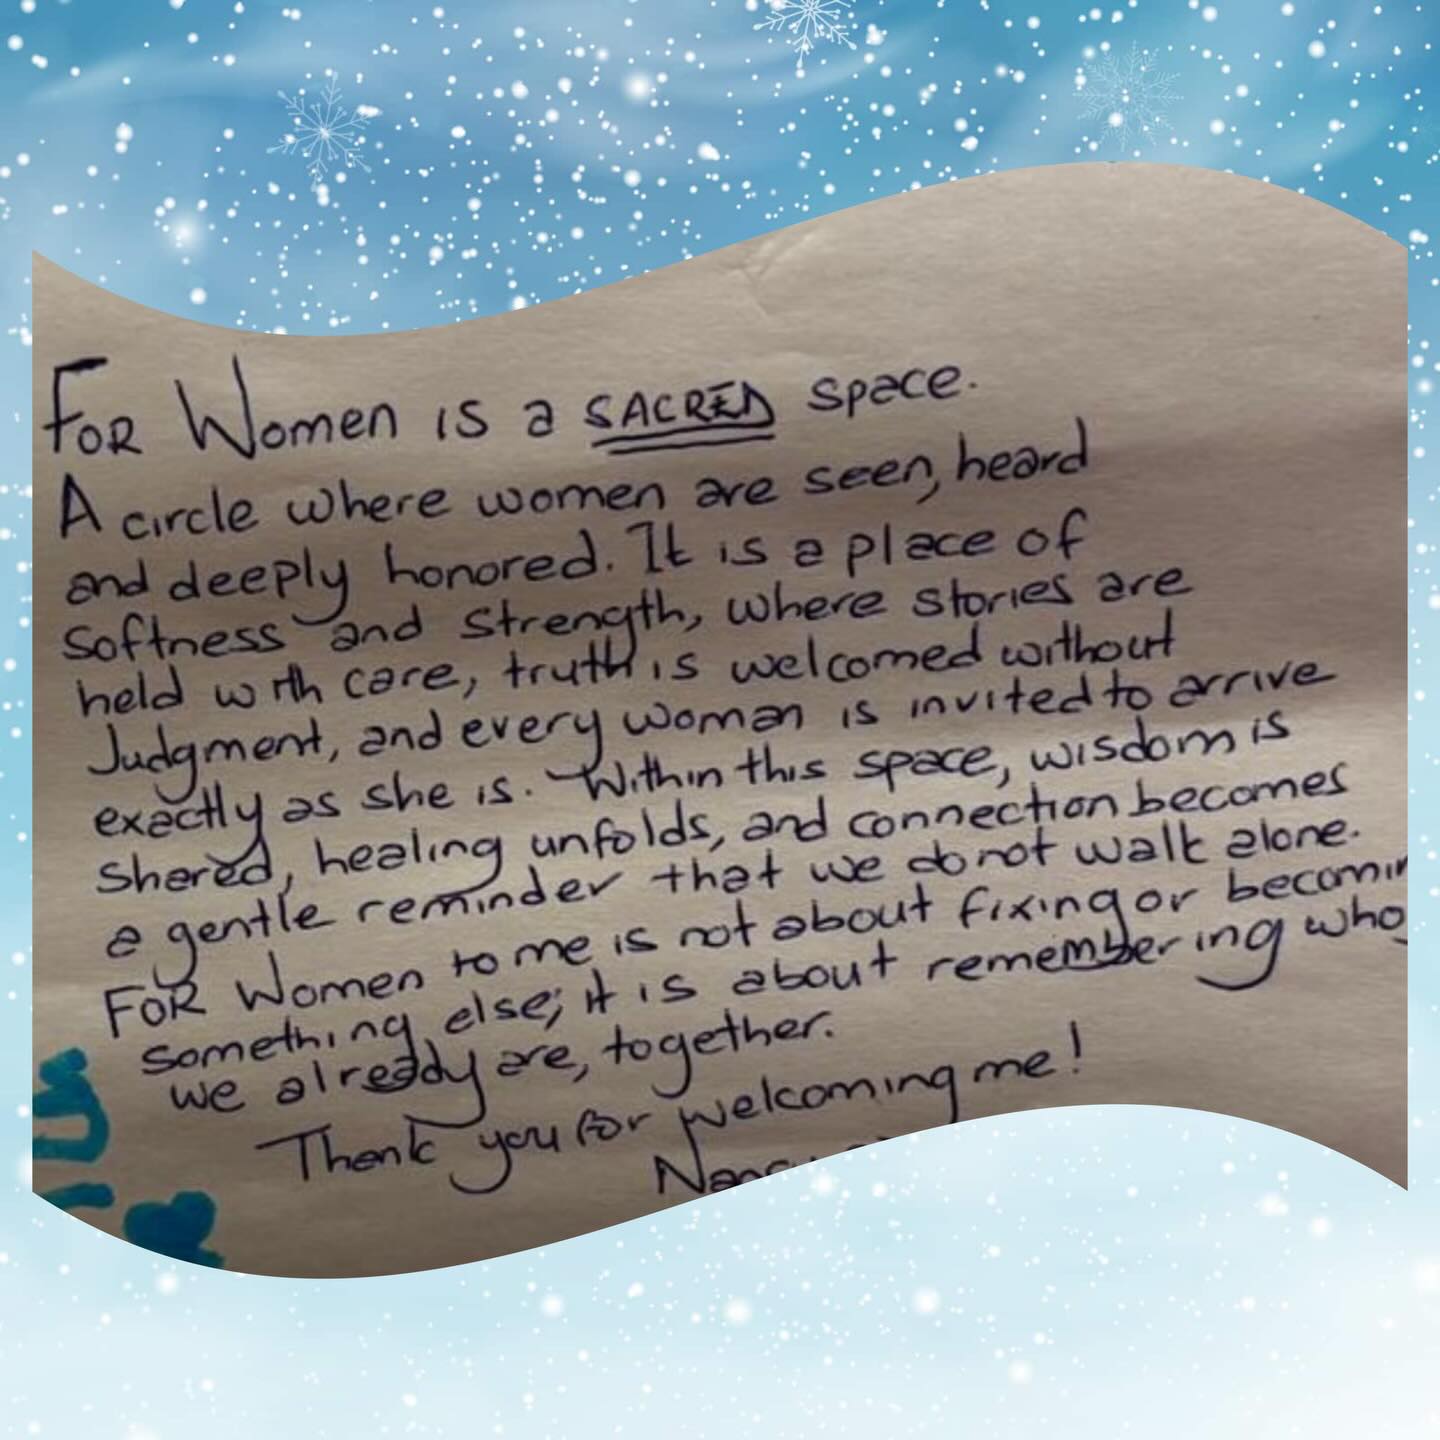 FOR Women is a SACRED space.
A circle where women are seen, heard
and deeply honored. It is a place of
softness and strength, where stories are
held with care, truth is welcomed without
Judgment, and every woman is invited to arrive
exactly as she is. Within this space, wisdom is
shared, healing unfolds, and connection becomes
a gentle reminder that we do not walk alone.
FOR Women to me is not about fixing or becomin
something else; it is about remembering who
we already are, together.
Thank you for welcoming me!